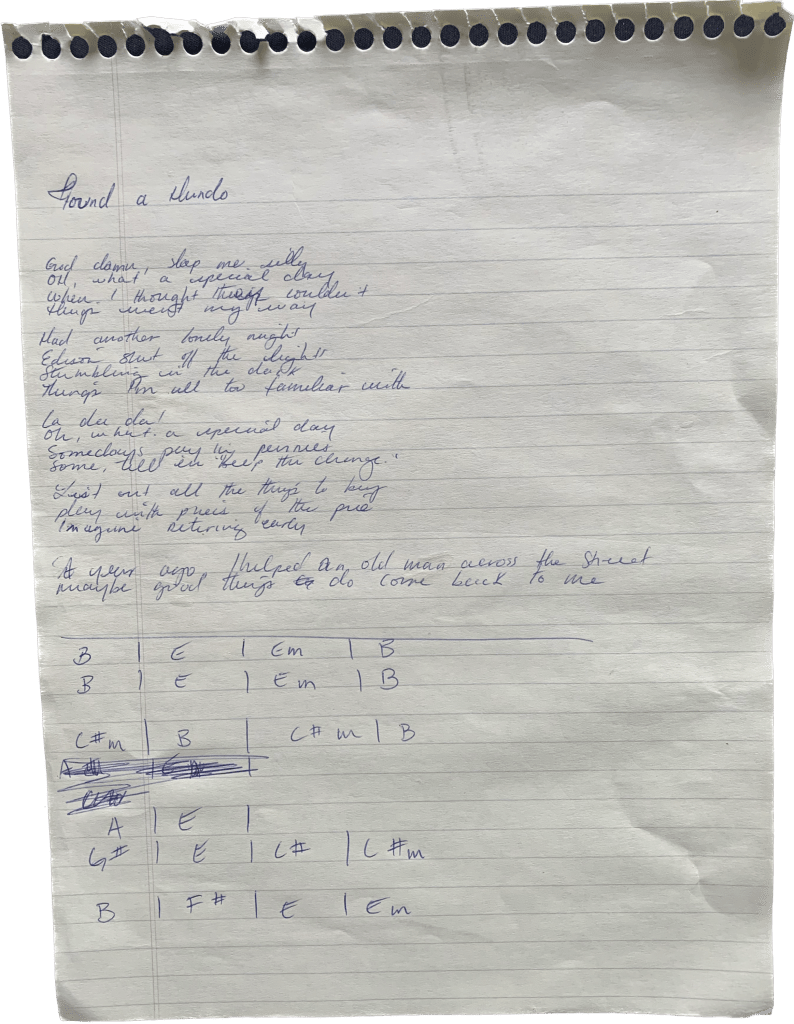 Found a Hundo
God damn, slap me silly
Oh, what a special day
When I thought things couldn't
things went my way
Had another lonely night
Edison shut off the lights
Stumbling in the dark
Things I'm all too familiar with
La da da!
Oh, what a special day
Somedays pay in pennies
Some, tell em "keep the change."
List out all the things to buy
play with pieces of the pie
Imagine retiring early
A year ago, I helped an old man across the street
maybe good things do come back to me
B | E | Em | B
B | E | Em | B
C#m | B | C#m | B
A | E |
G# | E | C# | C#m
B | F# | E | Em